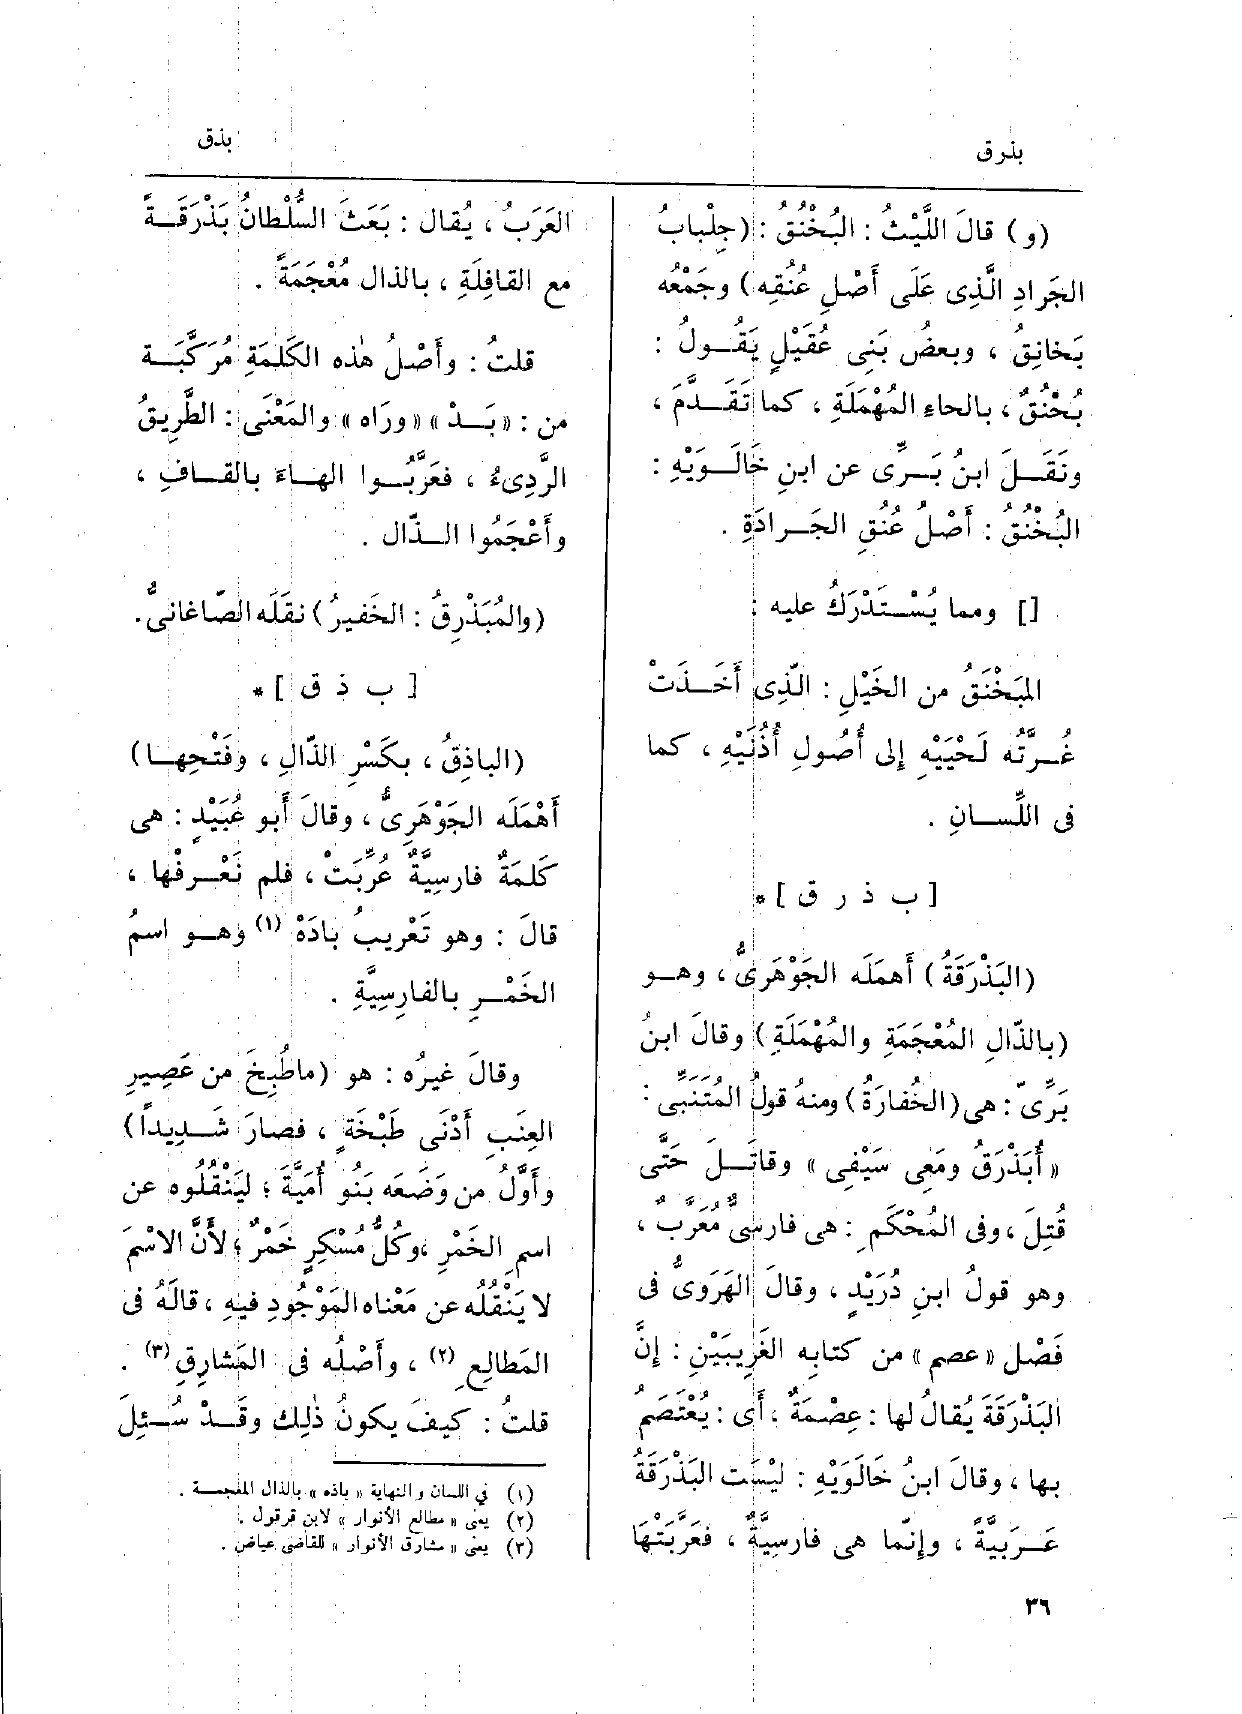 بذرق
بذق
(و) قالَ اللَّيْثُ : البُخْنُقُ : (جِلْبابُ
الجَرادِ الَّذِى عَلَى أَصْلِ عُنُقِه) وجَمْعُه
بَخانِقُ ، وبعضُ بَنِى عُقَيْلٍ يَقُـولُ :
بُحْنُقٌ ، بالحاء المُهْمَلَةِ ، كما تَقَـدَّمَ ،
ونَقَـلَ ابنُ بَـرِّى عن ابنِ خَالَـوَيْهِ :
البُخْنُقُ : أَصْلُ عُنُقِ الجَـرادَةِ .
[] ومما يُسْـتَدْرَكُ عليه :
المُبَخْنَقُ من الخَيْلِ : الَّذِى أَخَـذَتْ
غُـرَّتُه لَحْيَيْهِ إلى أُصُولِ أُذُنَيْهِ ، كما
فى اللِّسـانِ .
[ ب ذ ر ق ] *
(البَذْرَقَةُ) أَهمَلَه الجَوْهَرِىُّ ، وهـو
(بالذّالِ المُعْجَمَةِ والمُهْمَلَةِ) وقالَ ابنُ
بَرِّىّ : هى (الخُفارَةُ) ومنهُ قولُ المُتَنَبِّى :
« أُبَذْرَقُ ومَعِى سَيْفِى » وقاتَـلَ حَتَّى
قُتِلَ ، وفى المُحْكَمِ : هى فارسِىٌّ مُعَرَّبٌ ،
وهو قولُ ابنِ دُرَيْدٍ ، وقالَ الهَرَوِىُّ فى
فَصْل « عصم » من كتابِه الغَرِيبَيْنِ : إنَّ
البَذْرَقَةَ يُقالُ لها : عِصْمَةٌ ، أَى : يُعْتَصَمُ
بها ، وقالَ ابنُ خَالَوَيْهِ : لَيْسَت البَذْرَقَةُ
عَـرَبِيَّةً ، وإنَّما هى فارسِيَّةٌ ، فعَرَّبَتْهَا
العَرَبُ ، يُقال : بَعَثَ السُّلْطانُ بَذْرَقَـةً
مع القافِلَةِ ، بالذال مُعْجَمَةً .
قلتُ : وأَصْلُ هذه الكَلِمَةِ مُرَكَّبَـة
من : « بَـدْ » « ورَاه » والمَعْنَى : الطَّرِيقُ
الرَّدِىءُ ، فعَرَّبُـوا الهـاءَ بالقـافِ ،
وأَعْجَمُوا الـذّال .
(والمُبَذْرِقُ : الخَفيرُ) نقَلَه الصّاغانىُّ.
[ ب ذ ق ] *
(الباذِقُ ، بكَسْرِ الذّالِ ، وفَتْحِهـا)
أَهْمَلَه الجَوْهَرِىُّ ، وقالَ أَبو عُبَيْدٍ : هى
كَلِمَةٌ فارسِيَّةٌ عُرِّبَتْ ، فلم نَعْـرِفْها ،
قالَ : وهو تَعْريبُ باذَهْ (١) وهـو اسمُ
الخَمْـرِ بالفارِسِيَّةِ .
وقالَ غيرُه : هو (ماطُبِخَ من عَصِيرِ
العِنَبِ أَدْنَى طَبْخَةٍ ، فصارَ شَـدِيداً)
وأَوَّلُ من وَضَعَه بَنُو أُمَيَّةَ ؛ ليَنْقُلُوه عن
اسمِ الخَمْرِ ،وكُلُّ مُسْكِرٍ خَمْرٌ ؛ لأَنَّ الاسْمَ
لا يَنْقُلُه عن مَعْناه المَوْجُودِ فيهِ ، قالَهُ فى
المَطالِعِ (٢) ، وأَصْلُه فى المَشارِقِ (٣) .
قلتُ : كيفَ يكونُ ذٰلِك وقَـدْ سُـئِلَ
(١) في اللسان والنهاية « باذه » بالذال المعجمـة .
(٢) يعنى « مطالع الأنوار » لابن قرقول .
(٣) يعنى « مشارق الأنوار » للقاضى عياض .
٣٦